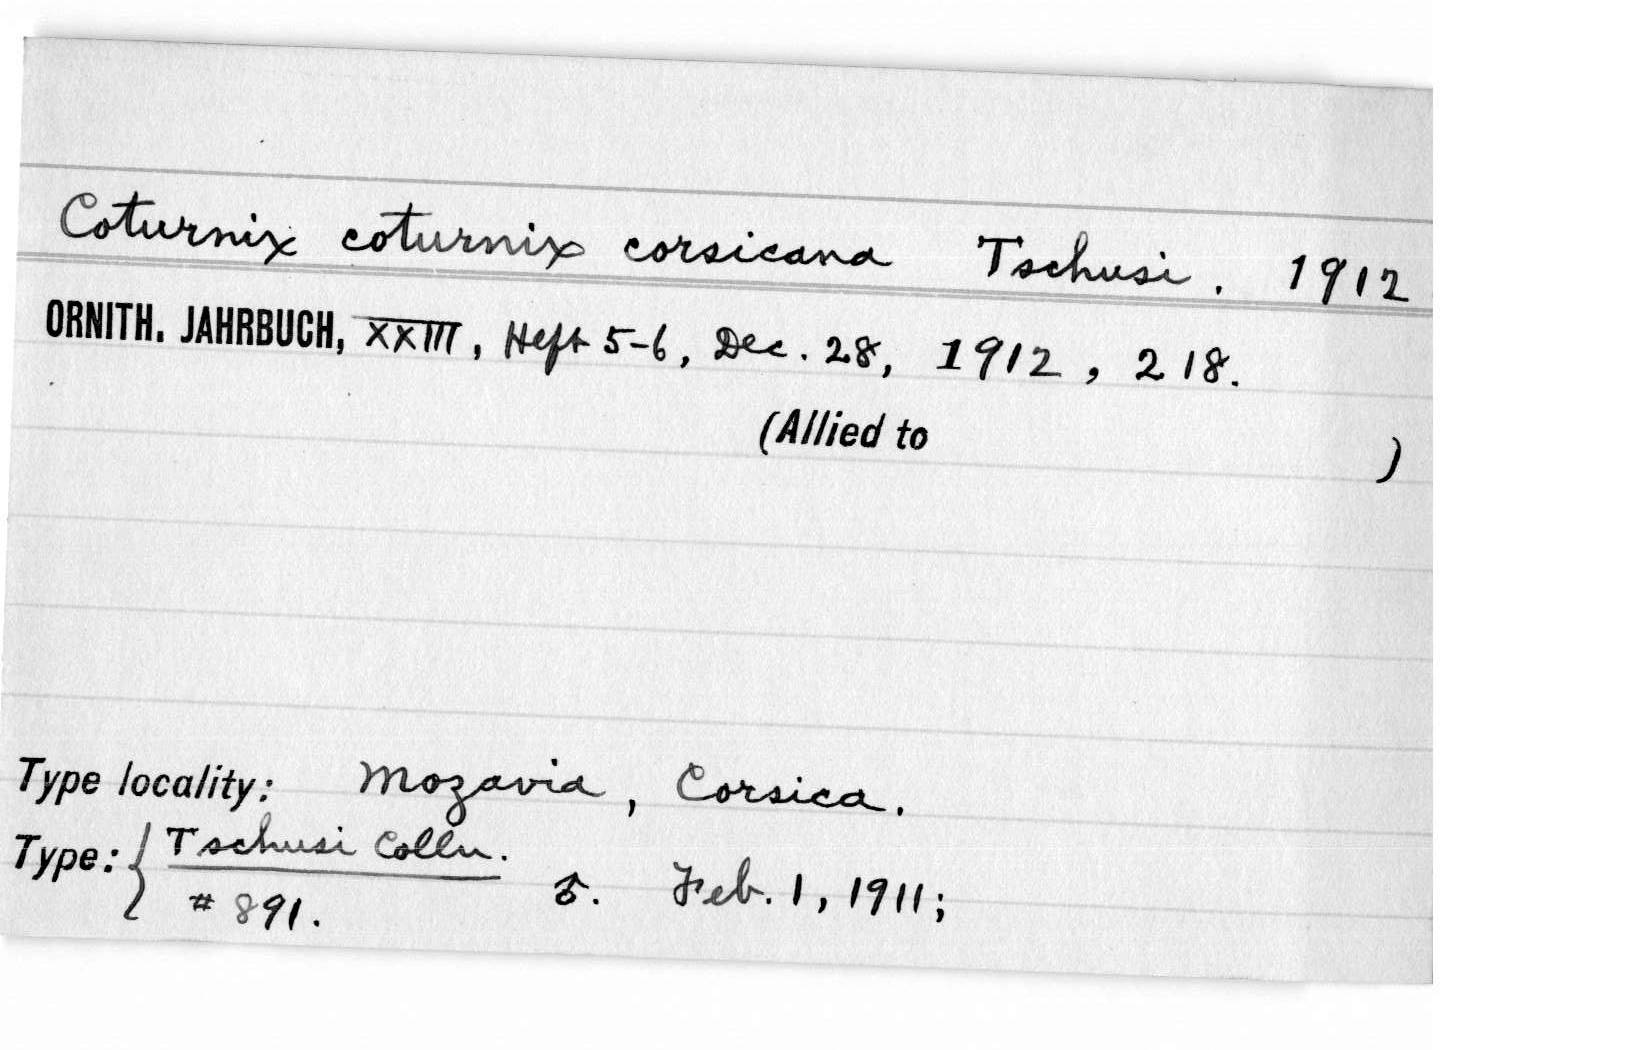 Coturnix coturnix corsicana Tschusi. 1912
ORNITH. JAHRBUCH, XXIII, Heft 5-6, Dec. 28, 1912, 218.
(Allied to )
Type locality: Mozavia, Corsica.
Type: { Tschusi Colln.
# 891. ♂. Feb. 1, 1911;